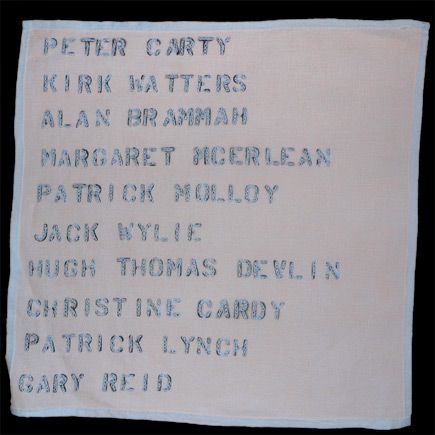 PETER CARTY
KIRK WATTERS
ALAN BRAMMAH
MARGARET MCERLEAN
PATRICK MOLLOY
JACK WYLIE
HUGH THOMAS DEVLIN
CHRISTINE CARDY
PATRICK LYNCH
GARY REID